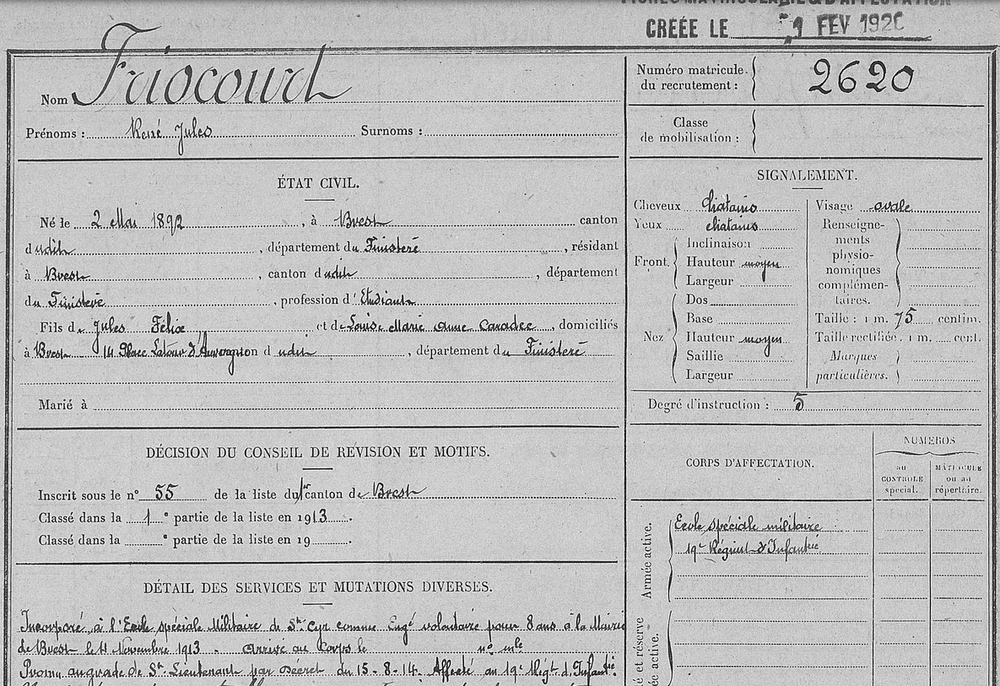 CRÉÉE LE 9 FEV 1920
Nom Friocourt
Prénoms : René Jules Surnoms :
ÉTAT CIVIL.
Né le 2 Mai 1892, à Brest canton
dudit, département du Finistère, résidant
à Brest, canton dudit, département
du Finistère, profession d'Etudiant
Fils de Jules Félix et de Louise Marie Anne Caradec, domiciliés
à Brest 14 Place Latour d'Auvergne on dudit, département du Finistère
Marié à
DÉCISION DU CONSEIL DE RÉVISION ET MOTIFS.
Inscrit sous le n° 55 de la liste du 1er canton de Brest
Classé dans la 1e partie de la liste en 1913.
Classé dans la e partie de la liste en 19 .
DÉTAIL DES SERVICES ET MUTATIONS DIVERSES.
Incorporé à l'Ecole spéciale Militaire de St Cyr comme Engé volontaire pour 8 ans à la Mairie
de Brest le 11 Novembre 1913 - Arrivé au Corps le ne mle
Promu au grade de St Lieutenant par Décret du 15-8-14. Affecté au 19e Régt d'Infantie
Numéro matricule du recrutement : 2620
Classe de mobilisation :
SIGNALEMENT.
Cheveux chatains
Yeux chatains
Front.
Inclinaison
Hauteur moyen
Largeur
Nez
Dos
Base
Hauteur moyen
Saillie
Largeur
Visage ovale
Renseigne-
ments
physio-
nomiques
complémen-
taires.
Taille : 1 m. 75 centim.
Taille rectifiée. 1 m. cent.
Marques
particulières.
Degré d'instruction : 5
CORPS D'AFFECTATION.
NUMÉROS
au
CONTRÔLE
spécial.
MATRICULE
ou au
répertoire.
Armée active.
Ecole spéciale militaire
19e Régiment d'Infanterie
et réserve
active.